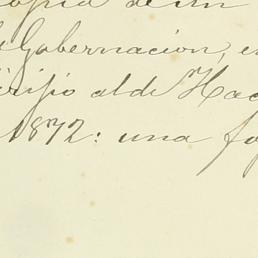 copia de un
Gobernacion, en
dirijio al de Hac
1872: una fo